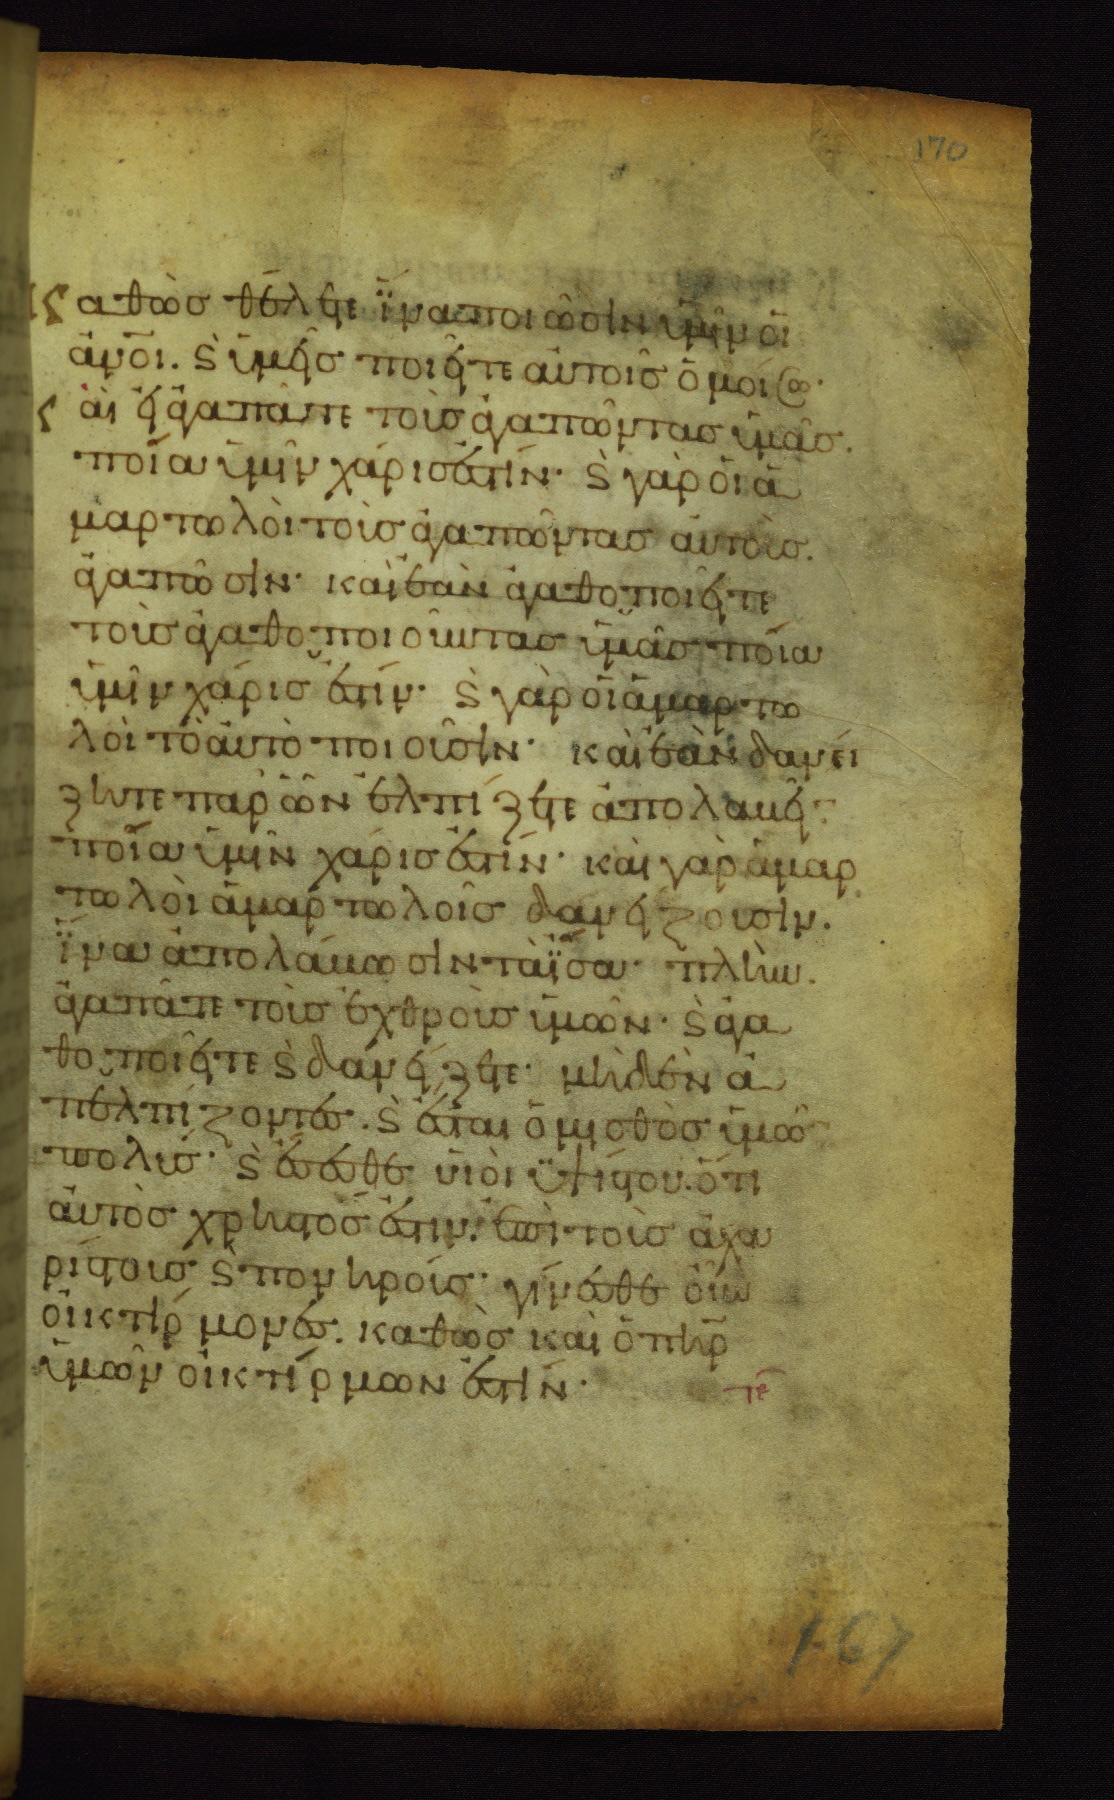 170
Καθὼς θέλετε ἵνα ποιῶσιν ὑμῖν οἱ
ἄνοι. ϗ ὑμεῖς ποιεῖτε αὐτοῖς ὁμοίως·
Καὶ εἰ ἀγαπᾶτε τοὺς ἀγαπῶντας ὑμᾶς.
ποία ὑμῖν χάρις ἐστίν· ϗ γὰρ οἱ ἁ
μαρτωλοὶ τοὺς ἀγαπῶντας αὐτοὺς.
ἀγαπῶσιν· καὶ ἐὰν ἀγαθοποιεῖτε
τοὺς ἀγαθοποιοῦντας ὑμᾶς ποία
ὑμῖν χάρις ἐστίν· ϗ γὰρ οἱ ἁμαρτω
λοὶ τὸ αὐτὸ ποιοῦσιν· καὶ ἐὰν δανεί
ζητε παρ' ὧν ἐλπίζετε ἀπολαβεῖ
ποία ὑμῖν χάρις ἐστίν· καὶ γὰρ ἁμαρ
τωλοὶ ἁμαρτωλοῖς δανείζουσιν.
ἵνα ἀπολάβωσιν τὰ ἴσα· πλὴν.
ἀγαπᾶτε τοὺς ἐχθροὺς ὑμῶν· ϗ ἀγα
θοποιεῖτε ϗ δανείζετε· μηδὲν ἀ
πελπίζοντες. ϗ ἔσται ὁ μισθὸς ὑμῶ
πολύς· ϗ ἔσεσθε υἱοὶ ὑψίστου. ὅτι
αὐτὸς χρηστός ἐστιν. ἐπὶ τοὺς ἀχα
ρίστους ϗ πονηρούς· γίνεσθε οὖν
οἰκτίρμονες. καθὼς καὶ ὁ πηρ
ὑμῶν οἰκτίρμων ἐστίν· τε
167